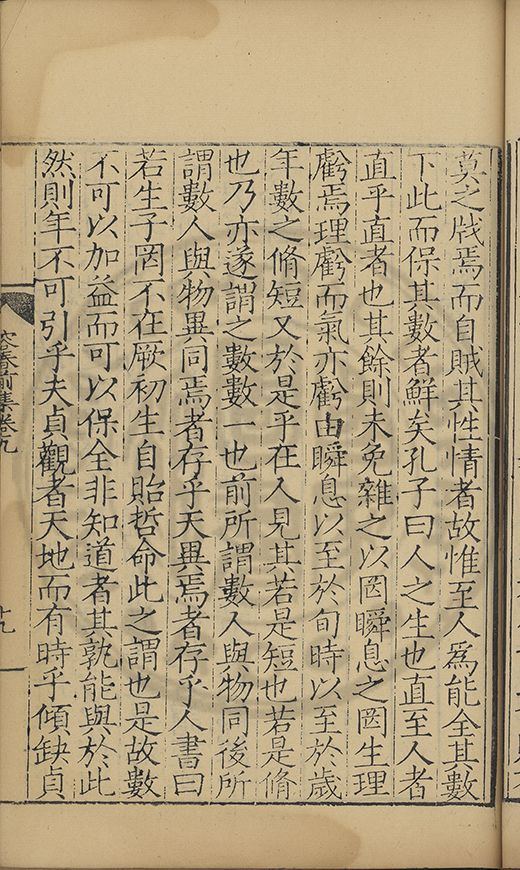 莫之戕焉而自賊其性情者故惟至人爲能全其數
下此而保其數者鮮矣孔子曰人之生也直至人者
直乎直者也其餘則未免雜之以罔瞬息之罔生理
虧焉理虧而氣亦虧由瞬息以至於旬時以至於歲
年數之脩短又於是乎在人見其若是短也若是脩
也乃亦遂謂之數數一也前所謂數人與物同後所
謂數人與物異同焉者存乎天異焉者存乎人書曰
若生子罔不在厥初生自貽哲命此之謂也是故數
不可以加益而可以保全非知道者其孰能與於此
然則年不可引乎夫貞觀者天地而有時乎傾缺貞
容春前集卷九
十九